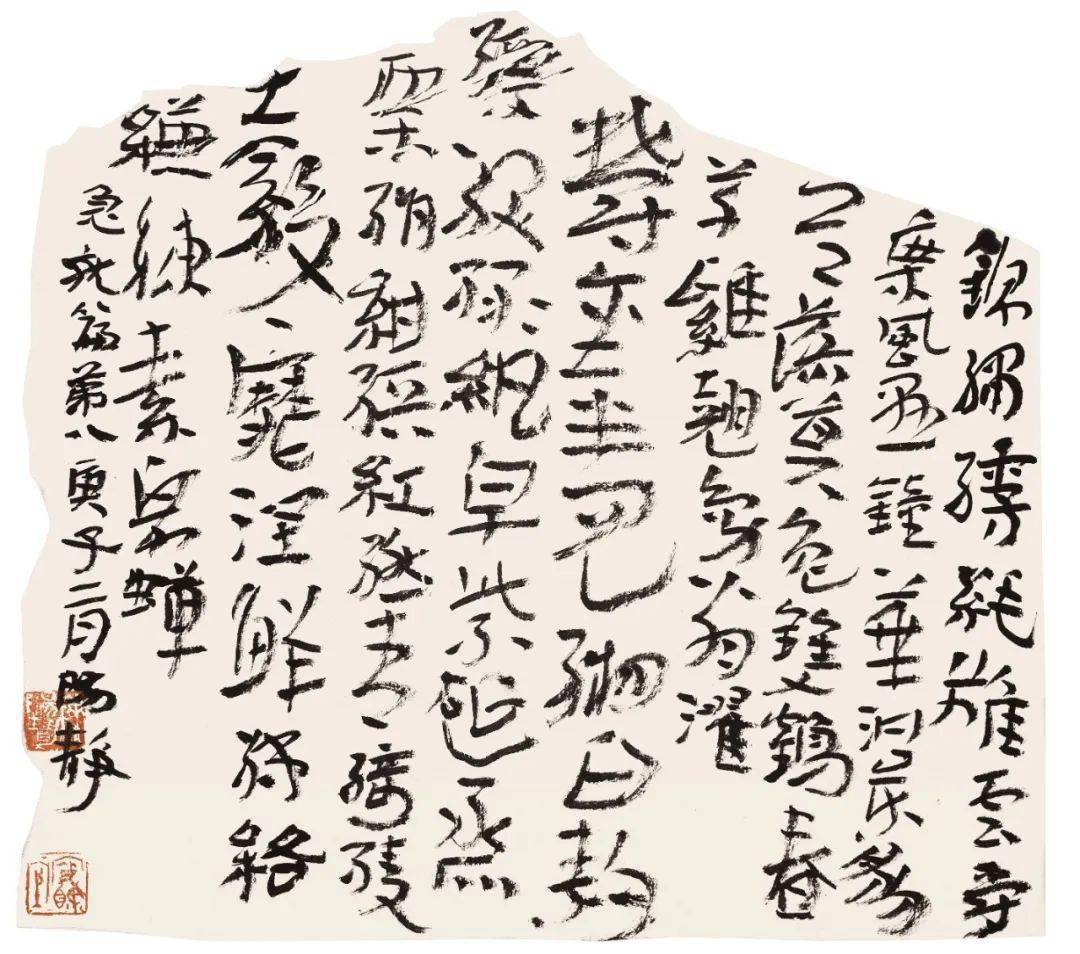 錦繡縵𦃄離雲爵
乘風縣鐘華洞樂豹
首落莫兔雙鶴春
草雞翹鳧翁濯
鬱金半見緗白䋤
縹綟綠紈皂紫硟烝
栗絹紺縉紅繎青綺綾
縠靡潤鮮綈絡
縑練素帛蟬
急就篇第八庚子二月靜